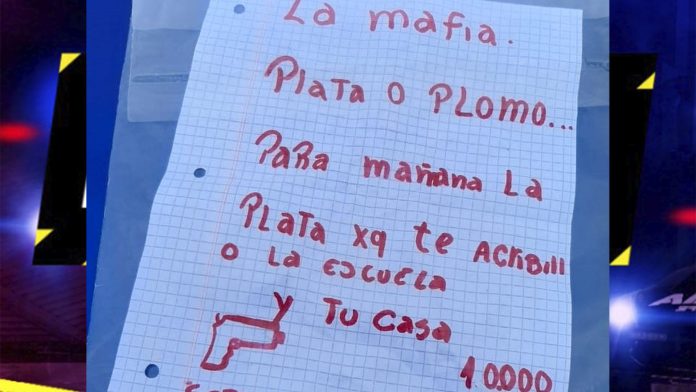 La mafia.
PLATA O PLOMO...
PARA mañana LA
PLATA xq te ACRIBILL
O LA ESCUELA
y TU CASA
10.000